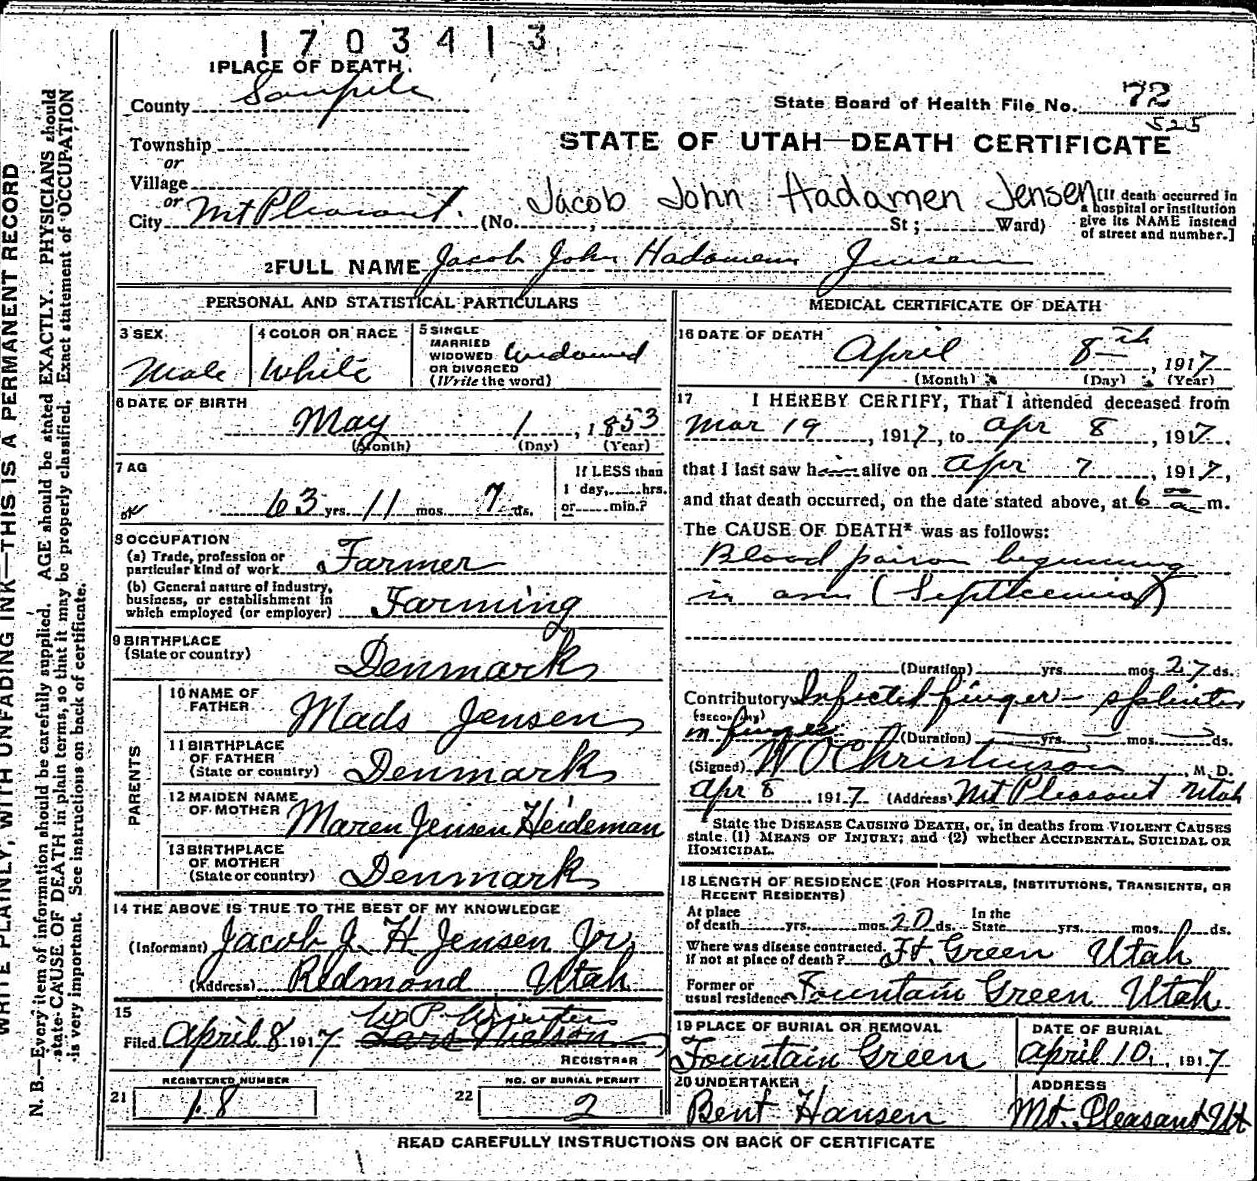 1703413
1 PLACE OF DEATH.
County Sanpete
State Board of Health File No. 72
525
STATE OF UTAH—DEATH CERTIFICATE
Township
or
Village
or
City Mt Pleasant. (No. ; St ; Ward)
Jacob John Hadamen Jensen
[If death occurred in
a hospital or institution
give its NAME instead
of street and number.]
2 FULL NAME Jacob John Hadamen Jensen
PERSONAL AND STATISTICAL PARTICULARS
3 SEX
Male
4 COLOR OR RACE
White
5 SINGLE
MARRIED
WIDOWED
OR DIVORCED
(Write the word)
Widowed
6 DATE OF BIRTH
May 1, 1853
(Month) (Day) (Year)
7 AG
63 yrs. 11 mos. 7 ds.
If LESS than
1 day, hrs.
or min.?
8 OCCUPATION
(a) Trade, profession or
particular kind of work Farmer
(b) General nature of industry,
business, or establishment in
which employed (or employer) Farming
9 BIRTHPLACE
(State or country) Denmark
PARENTS
10 NAME OF
FATHER Mads Jensen
11 BIRTHPLACE
OF FATHER
(State or country) Denmark
12 MAIDEN NAME
OF MOTHER Maren Jensen Heideman
13 BIRTHPLACE
OF MOTHER
(State or country) Denmark
14 THE ABOVE IS TRUE TO THE BEST OF MY KNOWLEDGE
(Informant) Jacob J. H Jensen Jr.
(Address) Redmond Utah
15
Filed April 8 1917 Lars Nielson
REGISTRAR
REGISTERED NUMBER
21 18
NO. OF BURIAL PERMIT
22 2
MEDICAL CERTIFICATE OF DEATH
16 DATE OF DEATH
April 8th, 1917
(Month) (Day) (Year)
17 I HEREBY CERTIFY, That I attended deceased from
Mar 19, 1917, to Apr 8, 1917,
that I last saw h alive on Apr 7, 1917,
and that death occurred, on the date stated above, at 6 00 a m.
The CAUSE OF DEATH* was as follows:
Blood poison beginning
in arm (Septicemia)
(Duration) yrs. mos. 27 ds.
Contributory Infected finger - splinter
(SECONDARY)
in finger (Duration) yrs. mos. ds.
(Signed) W O Christenson, M. D.
Apr 8, 1917 (Address) Mt Pleasant Utah
State the DISEASE CAUSING DEATH, or, in deaths from VIOLENT CAUSES
state (1) MEANS OF INJURY; and (2) whether ACCIDENTAL, SUICIDAL OR
HOMICIDAL.
18 LENGTH OF RESIDENCE (FOR HOSPITALS, INSTITUTIONS, TRANSIENTS, OR
RECENT RESIDENTS)
At place
of death yrs. mos. 20 ds.
In the
State yrs. mos. ds.
Where was disease contracted,
if not at place of death? Ft. Green Utah
Former or
usual residence Fountain Green Utah
19 PLACE OF BURIAL OR REMOVAL
Fountain Green
DATE OF BURIAL
April 10, 1917
20 UNDERTAKER
Bent Hansen
ADDRESS
Mt. Pleasant Ut
READ CAREFULLY INSTRUCTIONS ON BACK OF CERTIFICATE
WRITE PLAINLY, WITH UNFADING INK—THIS IS A PERMANENT RECORD
N. B.—Every item of information should be carefully supplied. AGE should be stated EXACTLY. PHYSICIANS should
state CAUSE OF DEATH in plain terms, so that it may be properly classified. Exact statement of OCCUPATION
is very important. See instructions on back of certificate.